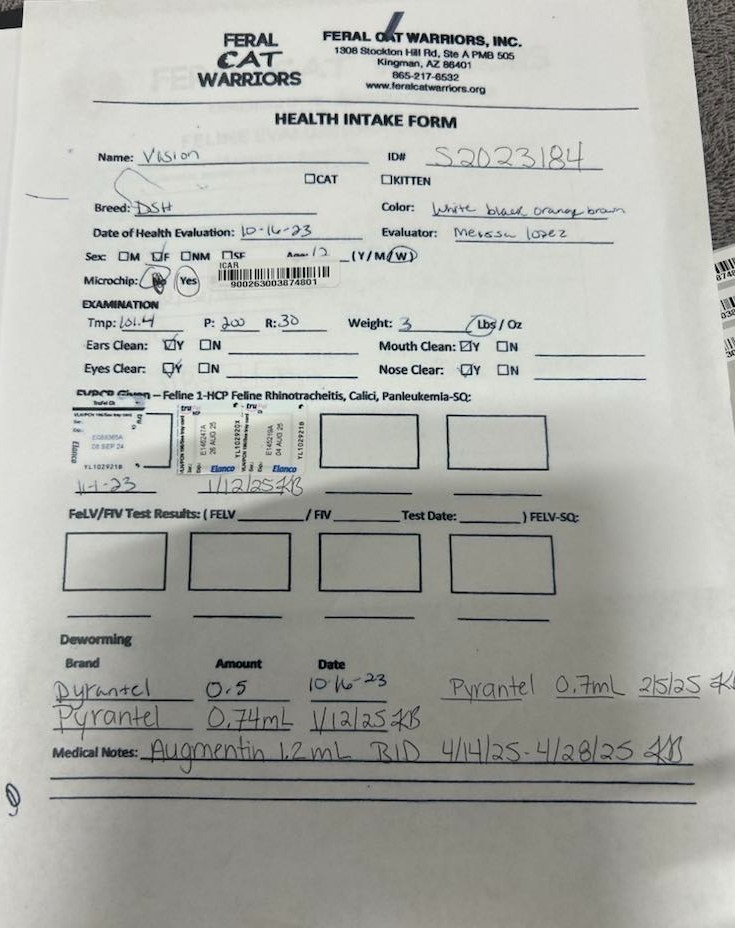 FERAL CAT WARRIORS
FERAL CAT WARRIORS, INC.
1308 Stockton Hill Rd, Ste A PMB 505
Kingman, AZ 86401
865-217-6532
www.feralcatwarriors.org
HEALTH INTAKE FORM
Name: Vision ID# S2023184
☐CAT ☐KITTEN
Breed: DSH Color: White black orange brown
Date of Health Evaluation: 10-16-23 Evaluator: Melissa lopez
Sex: ☐M ☑F ☐NM ☐SF Age: 12 (Y/M/W)
ICAR
Microchip: No Yes 900263003874801
EXAMINATION
Tmp: 101.4 P: 200 R: 30 Weight: 3 Lbs / Oz
Ears Clean: ☑Y ☐N Mouth Clean: ☑Y ☐N
Eyes Clear: ☑Y ☐N Nose Clear: ☑Y ☐N
FVRCP Given – Feline 1-HCP Feline Rhinotracheitis, Calici, Panleukemia-SQ:
08 SEP 24 Elanco YL102921B
E146247A 26 AUG 25 Elanco
E145219A 04 AUG 25 YL102921B Elanco
11-1-23 1/12/25 KB
FeLV/FIV Test Results: ( FELV / FIV Test Date: ) FELV-SQ:
Deworming
Brand Amount Date
Pyrantel 0.5 10-16-23 Pyrantel 0.7mL 2/5/25
Pyrantel 0.74mL 1/12/25 KB
Medical Notes: Augmentin 1.2mL BID 4/14/25-4/28/25 KB